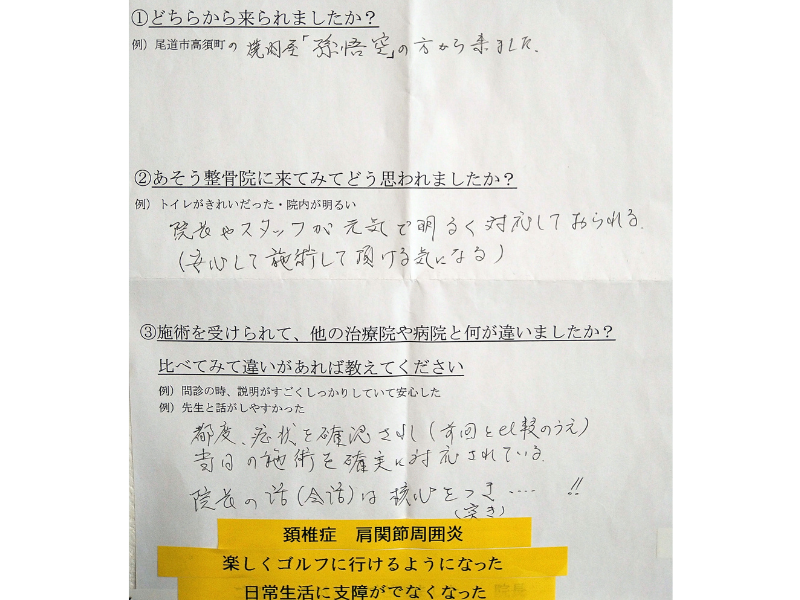 ①どちらから来られましたか？
例）尾道市高須町の 焼肉屋「孫悟空」の方から来ました.
②あそう整骨院に来てみてどう思われましたか？
例）トイレがきれいだった・院内が明るい
院長やスタッフが元気で明るく対応しておられる.
(安心して施術して頂ける気になる)
③施術を受けられて、他の治療院や病院と何が違いましたか？
比べてみて違いがあれば教えてください
例）問診の時、説明がすごくしっかりしていて安心した
例）先生と話がしやすかった
都度、症状を確認され(前回と比較のうえ)
当日の施術を確実に対応されている.
院長の話(会話)は核心をつき‥‥ !!
(突き)
頚椎症 肩関節周囲炎
楽しくゴルフに行けるようになった
日常生活に支障がでなくなった